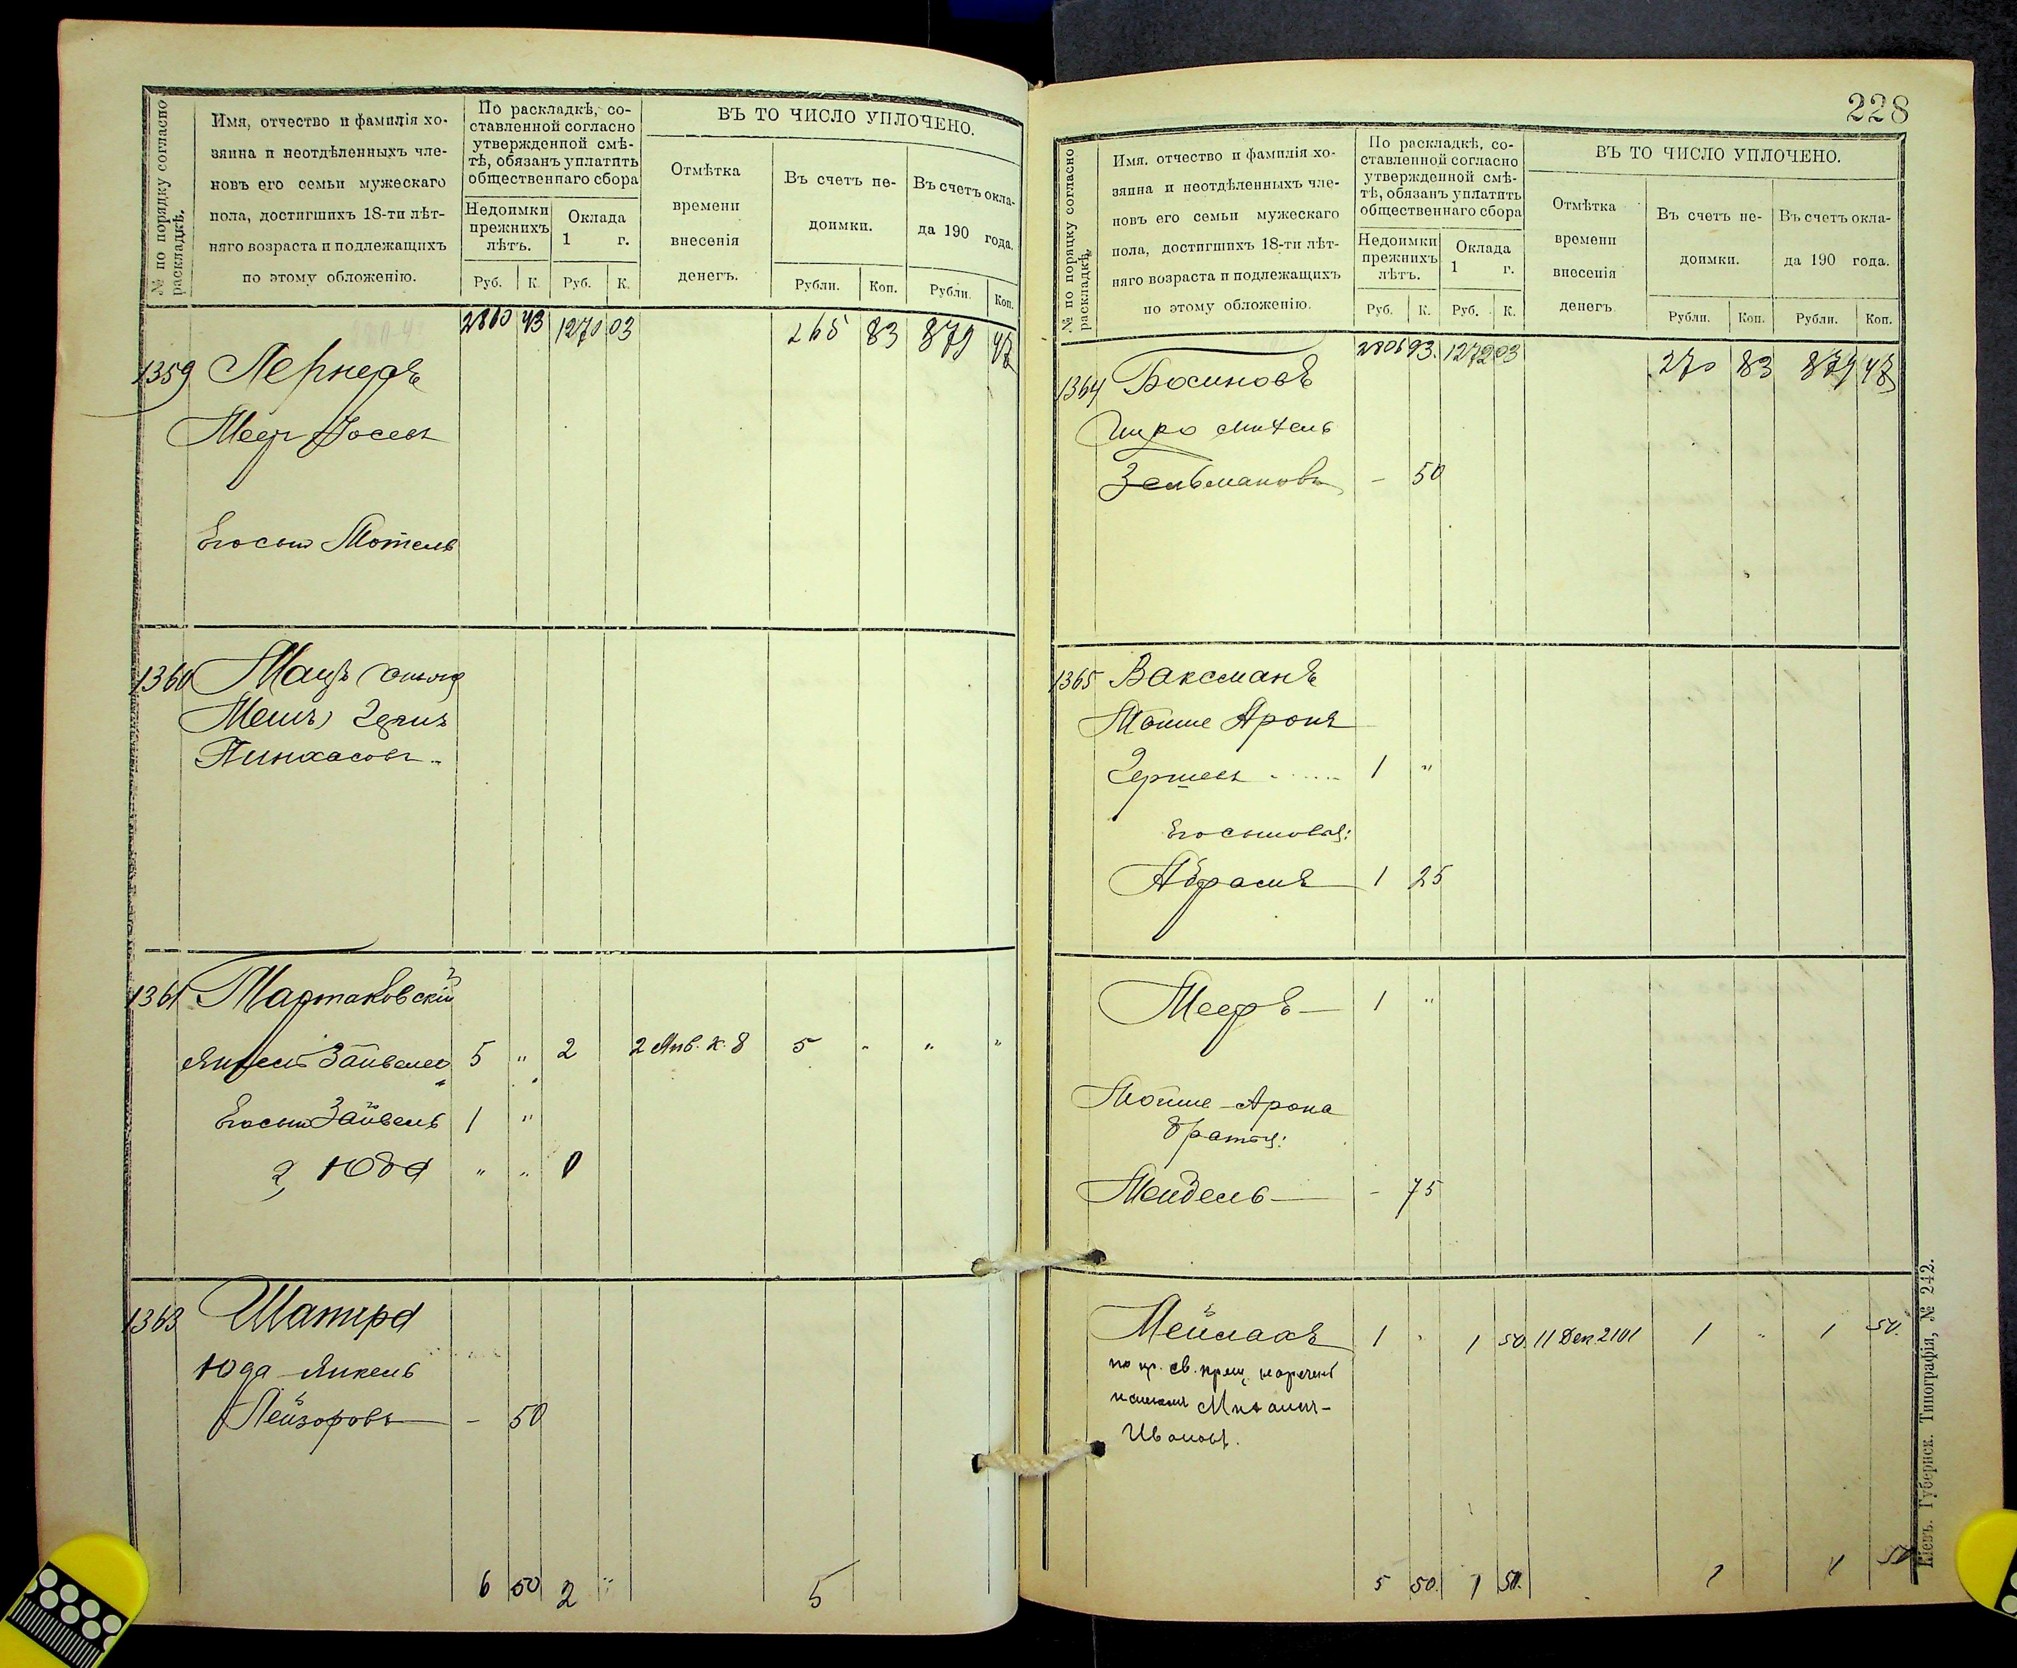 № по порядку согласно раскладкѣ.
Имя, отчество и фамилія хо-
зяина и неотдѣленныхъ чле-
новъ его семьи мужескаго
пола, достигшихъ 18-ти лѣт-
няго возраста и подлежащихъ
по этому обложенію.
По раскладкѣ, со-
ставленной согласно
утвержденной смѣ-
тѣ, обязанъ уплатить
общественнаго сбора
Недоимки
прежнихъ
лѣтъ.
Оклада
1 г.
Руб. К. Руб. К.
ВЪ ТО ЧИСЛО УПЛОЧЕНО.
Отмѣтка
времени
внесенія
денегъ.
Въ счетъ не-
доимки.
Въ счетъ окла-
да 190 года.
Рубли. Коп. Рубли. Коп.
43 1270 03 265 83 879 47
1359 Лернеръ
Меер Іосев
Его сын Мотель
1360 Мацъ
Пинхасовъ
1361 Мартаковскій
Янкель Зайвелев 5 " 2 2 Янв. к. 8 5 " " "
Его сын Зайвель 1 "
2, Юда " " 1
1363 Шапира
Юда Янкель
Лейзоровъ — - 50
6 50 2 " 5
228
№ по порядку согласно раскладкѣ.
Имя, отчество и фамилія хо-
зяина и неотдѣленныхъ чле-
новъ его семьи мужескаго
пола, достигшихъ 18-ти лѣт-
няго возраста и подлежащихъ
по этому обложенію.
По раскладкѣ, со-
ставленной согласно
утвержденной смѣ-
тѣ, обязанъ уплатить
общественнаго сбора
Недоимки
прежнихъ
лѣтъ.
Оклада
1 г.
Руб. К. Руб. К.
ВЪ ТО ЧИСЛО УПЛОЧЕНО.
Отмѣтка
времени
внесенія
денегъ
Въ счетъ не-
доимки.
Въ счетъ окла-
да 190 года.
Рубли. Коп. Рубли. Коп.
93. 1272 03 270 83 879 47
1364 Босиновъ
Зельмановъ - 50
1365 Ваксманъ
Мойше Аронъ
Гершевъ 1 "
Его сыновья:
Абрамъ — 1 25
Мееръ — 1 "
Мойше-Арона
братья:
Мендель — - 75
Мейлахъ 1 " 1 50. 11 Дек. 2101 1 " 1 50.
по кр. св. крещ. нареченъ
именемъ Михаилъ-
Ивановъ.
5 50. 1 50. 1 1 50
Кіевъ. Губернск. Типографія, № 242.